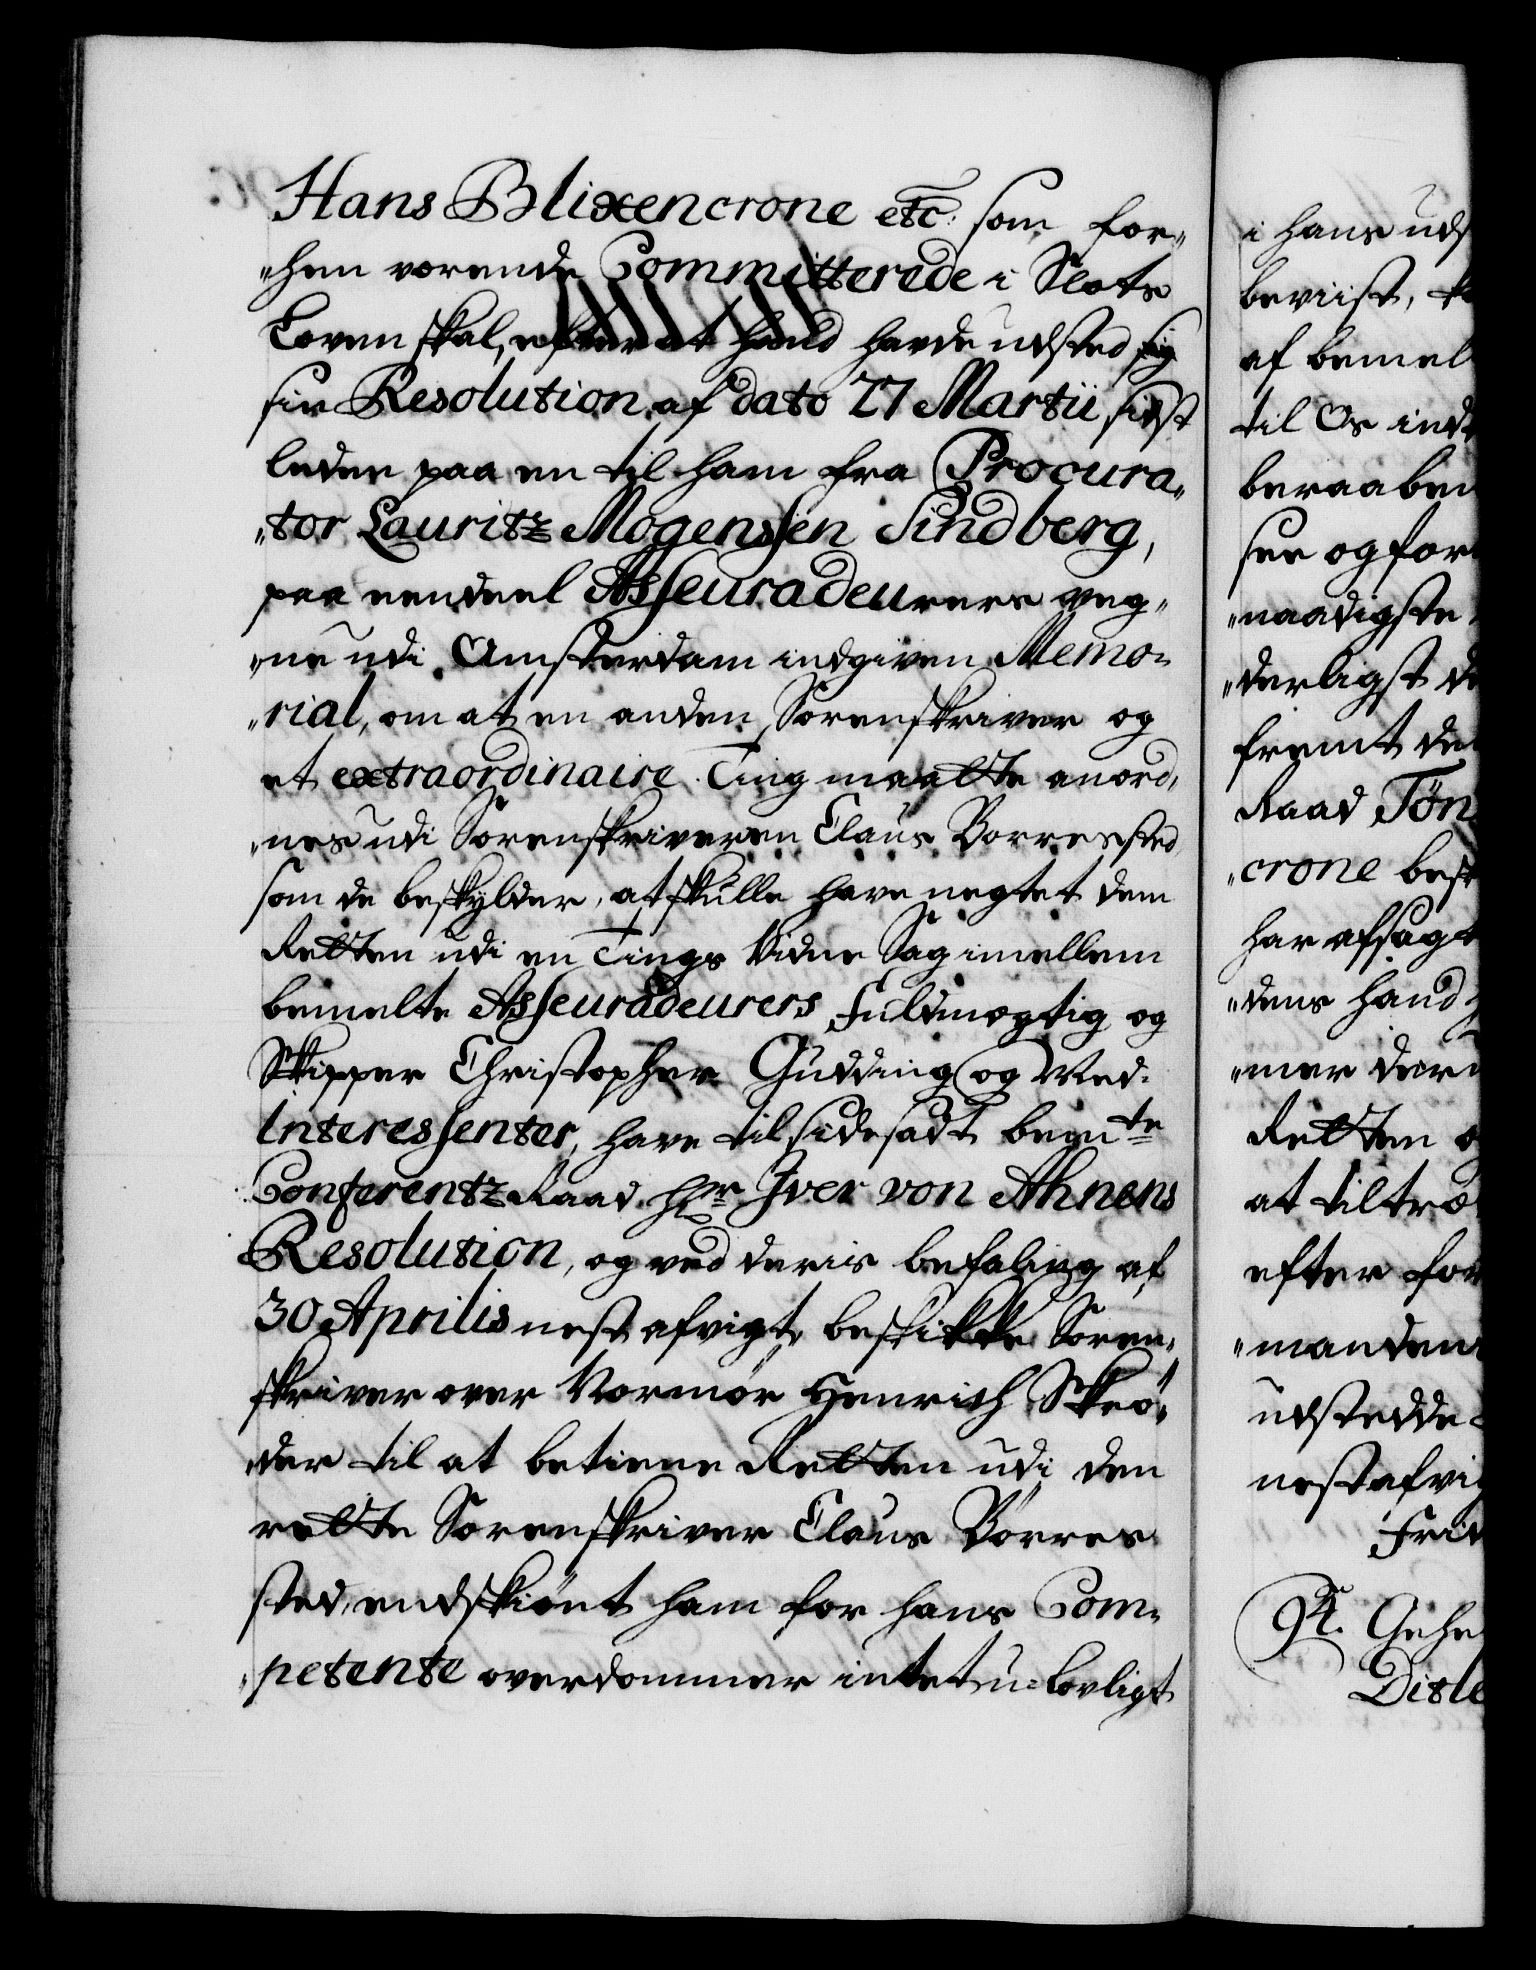 Hans Blixencrone etc: som for-
-hen vorende Committerede i Slots
Loven skal, efter at hand havde udsted sig
sin Resolution af dato 27 Martii sidst
leden paa en til ham fra Procura-
-tor Lauritz Mogenssen Sindberg,
paa eendeel Asseuradeurers veg-
-ne udi Amsterdam indgiven Memo-
-rial, om at en anden Sorenskriver og
et extraordinaire Ting maatte anord-
-nes udi Sorenskriveren Claus Borresteds
som de beskylder, at skulle have negtet dem
Retten udi en Tings Vidne Sag imellem
bemelte Asseuradeurers Fuldmægtig og
Skipper Christopher Gudding og Med-
Interessenter, have tilsidesadt bemte
Conferentz Raad Hr Iver von Ahnens
Resolution, og ved deris befaling af
30 Aprilis nest afvigt beskikke Soren-
skriver over Normør Henrich Skrö-
-der til at betiene Retten udi den
rette Sorenskriver Claus Börre-
sted, endskiönt ham for hans Com-
-petente overdommer intet u-lovligt
i hans uds
beviist,
af bemel
til Os ind
beraaben
see og for
-naadigste
-derligst
fremt de
Raad Tön
-crone bes
har afsagt
-dens hand
-mer der
Retten
at tiltræ
efter for
-mandens
udstedde
nest afvig
Frid
94. Gehe
Ditle